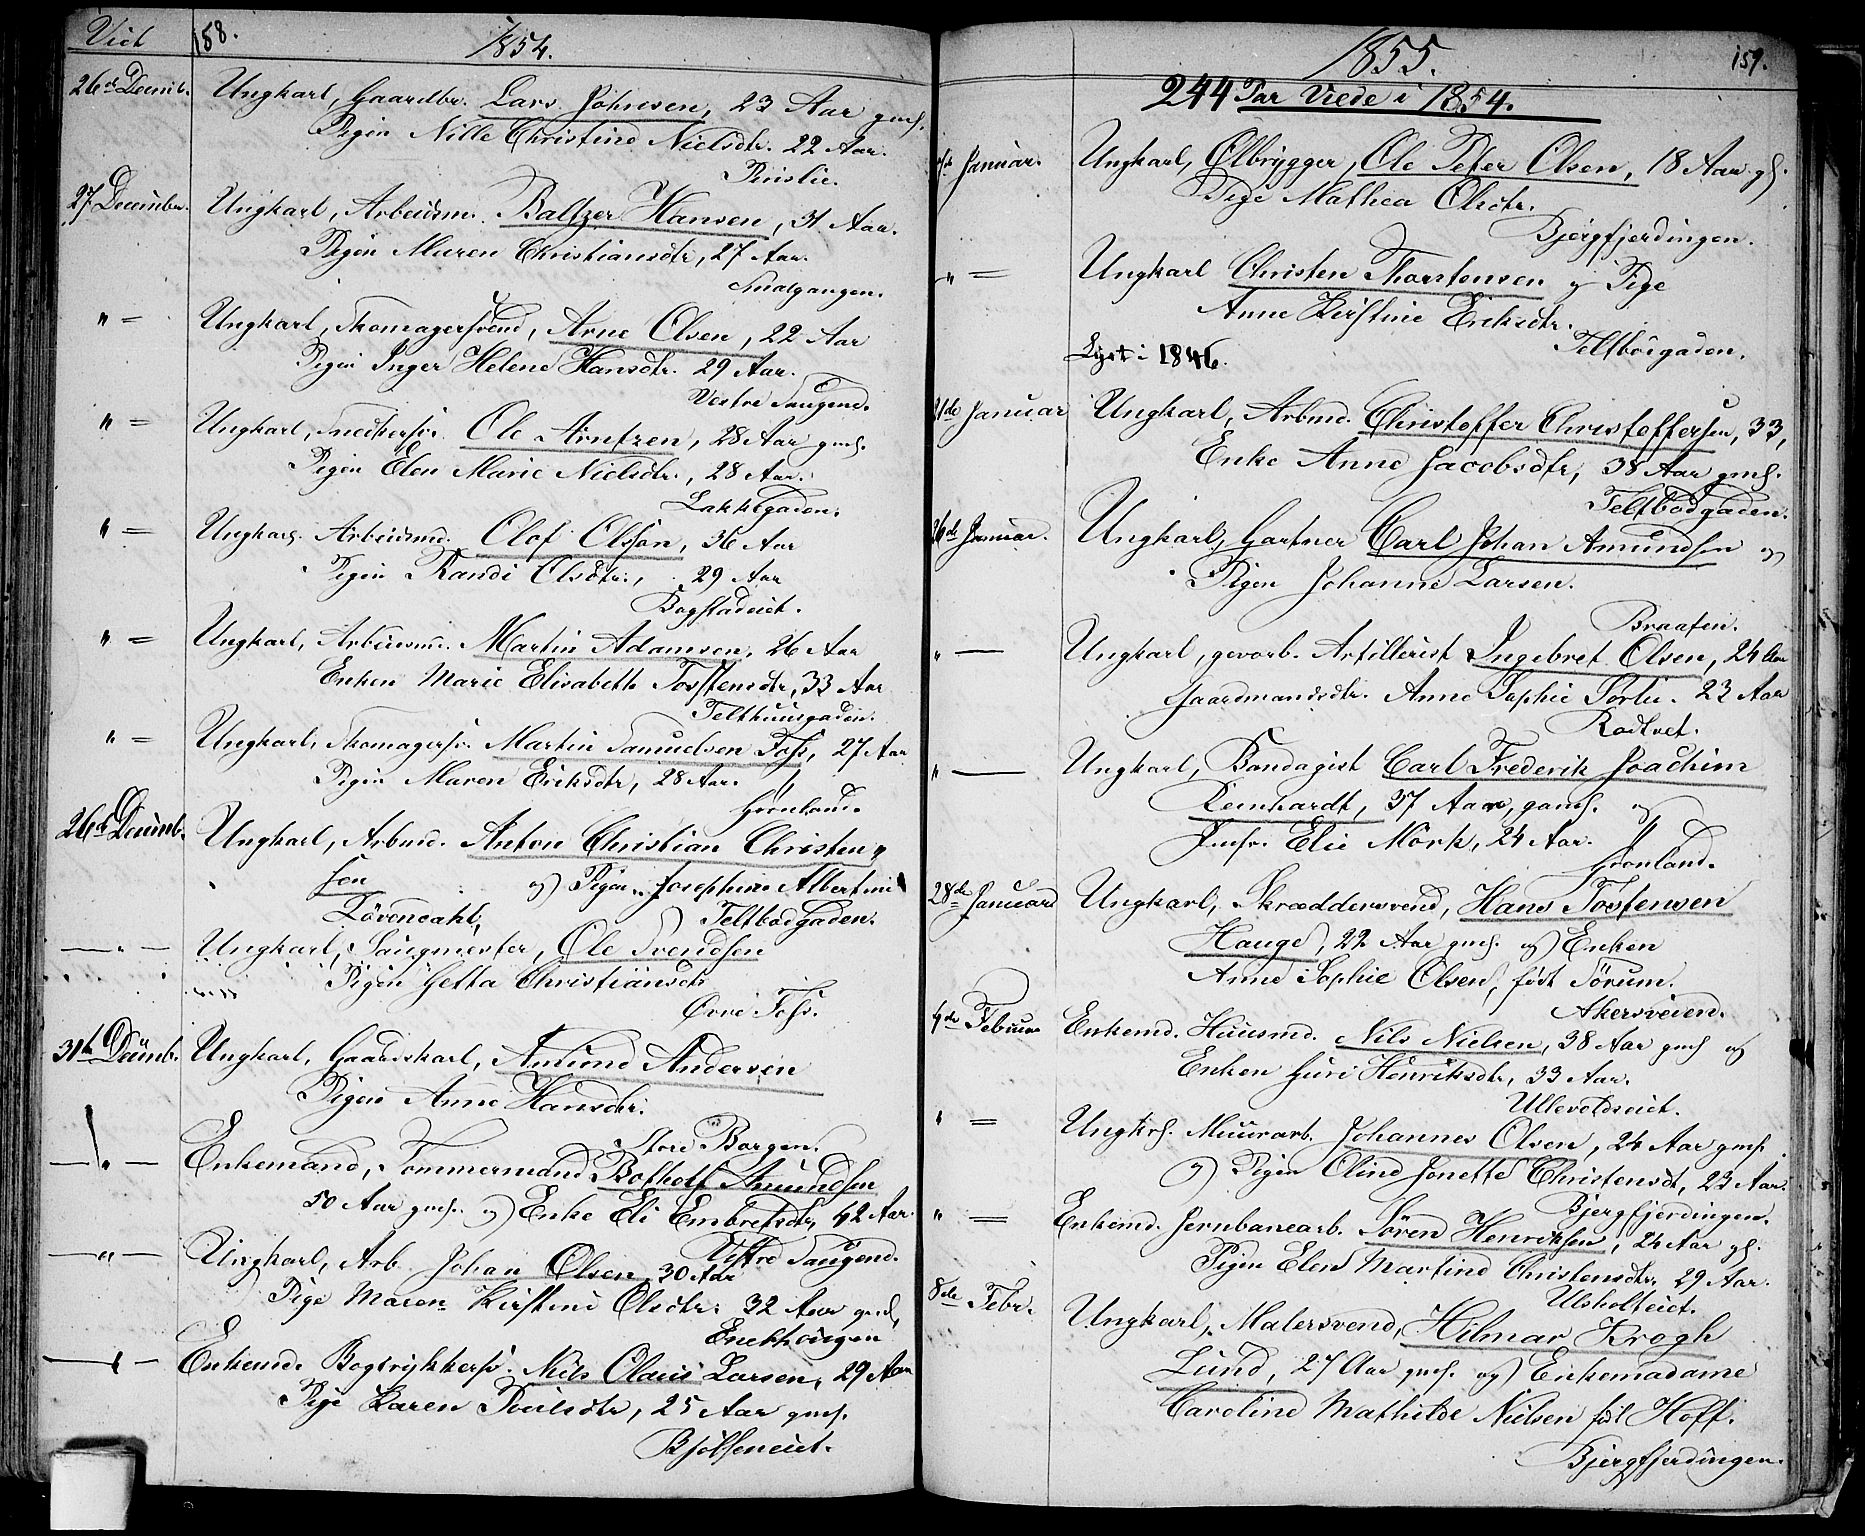 Viet 158. 1854.
26de Decemb. Ungkarl, Gaardbr. Lars Johnsen, 23 Aar gml.
Pigen Nille Christine Nielsdtr. 22 Aar.
27 December. Ungkarl, Arbeidsm. Baltzer Hansen, 31 Aar.
Pigen Maren Christiansdtr, 27 Aar.
Smalgangen.
" = Ungkarl, Skomagersvend, Arne Olsen, 22 Aar
Pigen Inger Helene Hansdtr. 29 Aar.
Vestre Saugene.
" = Ungkarl, Snedkersv. Ole Arntzen, 28 Aar gml.
Pigen Elen Marie Nielsdtr., 28 Aar.
Lakkegaden.
" = Ungkarl. Arbeidsmd. Olof Olsson, 36 Aar
Pigen Randi Olsdtr., 29 Aar
Bogstadeiet.
" = Ungkarl, Arbeidsmd. Martin Adamsen, 26 Aar
Enken Marie Elisabeth Tostensdtr, 33 Aar
Telthuusgaden.
" = Ungkarl, Skomagersv. Martin Samuelsen Foss, 27 Aar
Pigen Maren Eriksdtr, 28 Aar.
Grønland.
26de Decemb. Ungkarl, Arbmd. Anton Christian Christen„
sen og Pigen Josephine Albertine
Løvendahl, Teltbodgaden.
— " — Ungkarl, Saugmester, Ole Svendsen
Pigen Getta Christiansdtr
Øvre Foss.
31te Decemb. Ungkarl, Gaardskarl, Amund Andersen
Pigen Anne Hansdtr.
Store Borgen.
— " — Enkemand, Tømmermand Botholf Amundsen
50 Aar gml. og Enke Eli Embretsdtr, 42 Aar.
Vestre Saugene.
— " — Ungkarl, Arb. Johan Olsen, 30 Aar
Pige Maren Kirstine Olsdtr. 32 Aar gml,
Enerhougen
— " — Enkemd. Bogtrykkersv. Nils Olaus Larsen, 29 Aar
Pige Karen Poulsdtr, 25 Aar gml.
Bjølseneiet.
1855. 159.
244 Par Viede i 1854.
Januar. Ungkarl, Ølbrygger, Ole Peter Olsen, 18 Aar gl.
Pige Mathea Olsdtr.
Bjergfjerdingen.
" = Ungkarl Christen Thorstensen og Pige
Anne Kirstine Eriksdtr.
Teltbodgaden.
Lyst i 1846.
21de Januar Ungkarl, Arbmd. Christoffer Christoffersen, 33,
Enke Anne Jacobsdtr, 38 Aar gml.
Teltbodgaden.
26de Januar. Ungkarl, Gartner Carl Johan Amundsen og
Pigen Johanne Larsen.
Braaten.
" — Ungkarl, gevorb. Artillerist Ingebret Olsen, 24 Aar
Gaardmandsdtr. Anne Sophie Sorlie. 23 Aar
Rødtvet.
" — Ungkarl, Bandagist Carl Frederik Joachim
Reinhardt, 37 Aar, gaml. og
Jmfr. Elie Mørk, 24 Aar.
Grønland.
28de Januar Ungkarl, Skræddersvend, Hans Tostensen
Hauge, 22 Aar gml. og Enken
Anne Sophie Olsen, født Sørum.
Akersveiend.
4de Februar Enkemd. Huusmd. Nils Nielsen, 38 Aar gml og
Enken Guri Henriksdtr, 33 Aar.
Ullevoldseiet.
" = Ungkrl. Muurarb. Johannes Olsen, 24 Aar gml.
og Pigen Oline Jonette Christensdt, 23 Aar.
Bjergfjerdingen.
" = Enkemd. Jernbanearb. Søren Henriksen, 24 Aar gl.
Pigen Elen Martine Christensdtr. 29 Aar.
Ulsholteiet.
8de Febr. Ungkarl, Malersvend, Hilmar Krogh
Lund, 27 Aar gml. og Enkemadame
Caroline Mathilde Nielsen født Hoff.
Bjergfjerdingen.